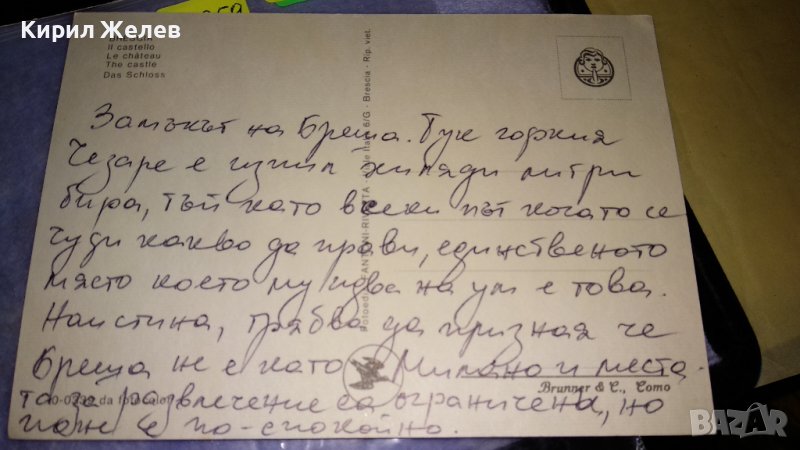 Кирил Желев
059
Il castello
Le château
The castle
Das Schloss
Brescia - Rip. viet.
Замъкът на Бреша. Тук горкия
Чезаре е изпил хиляди литри
бира, тъй като всеки път когато се
чуди какво да прави, единственото
място което му идва на ум е това.
Наистина, трябва да призная че
Бреша не е като Милано и места-
та за развлечение са ограничена, но
пък е по-спокойно.
da fotocolor
Brunner & C., Como
bazar